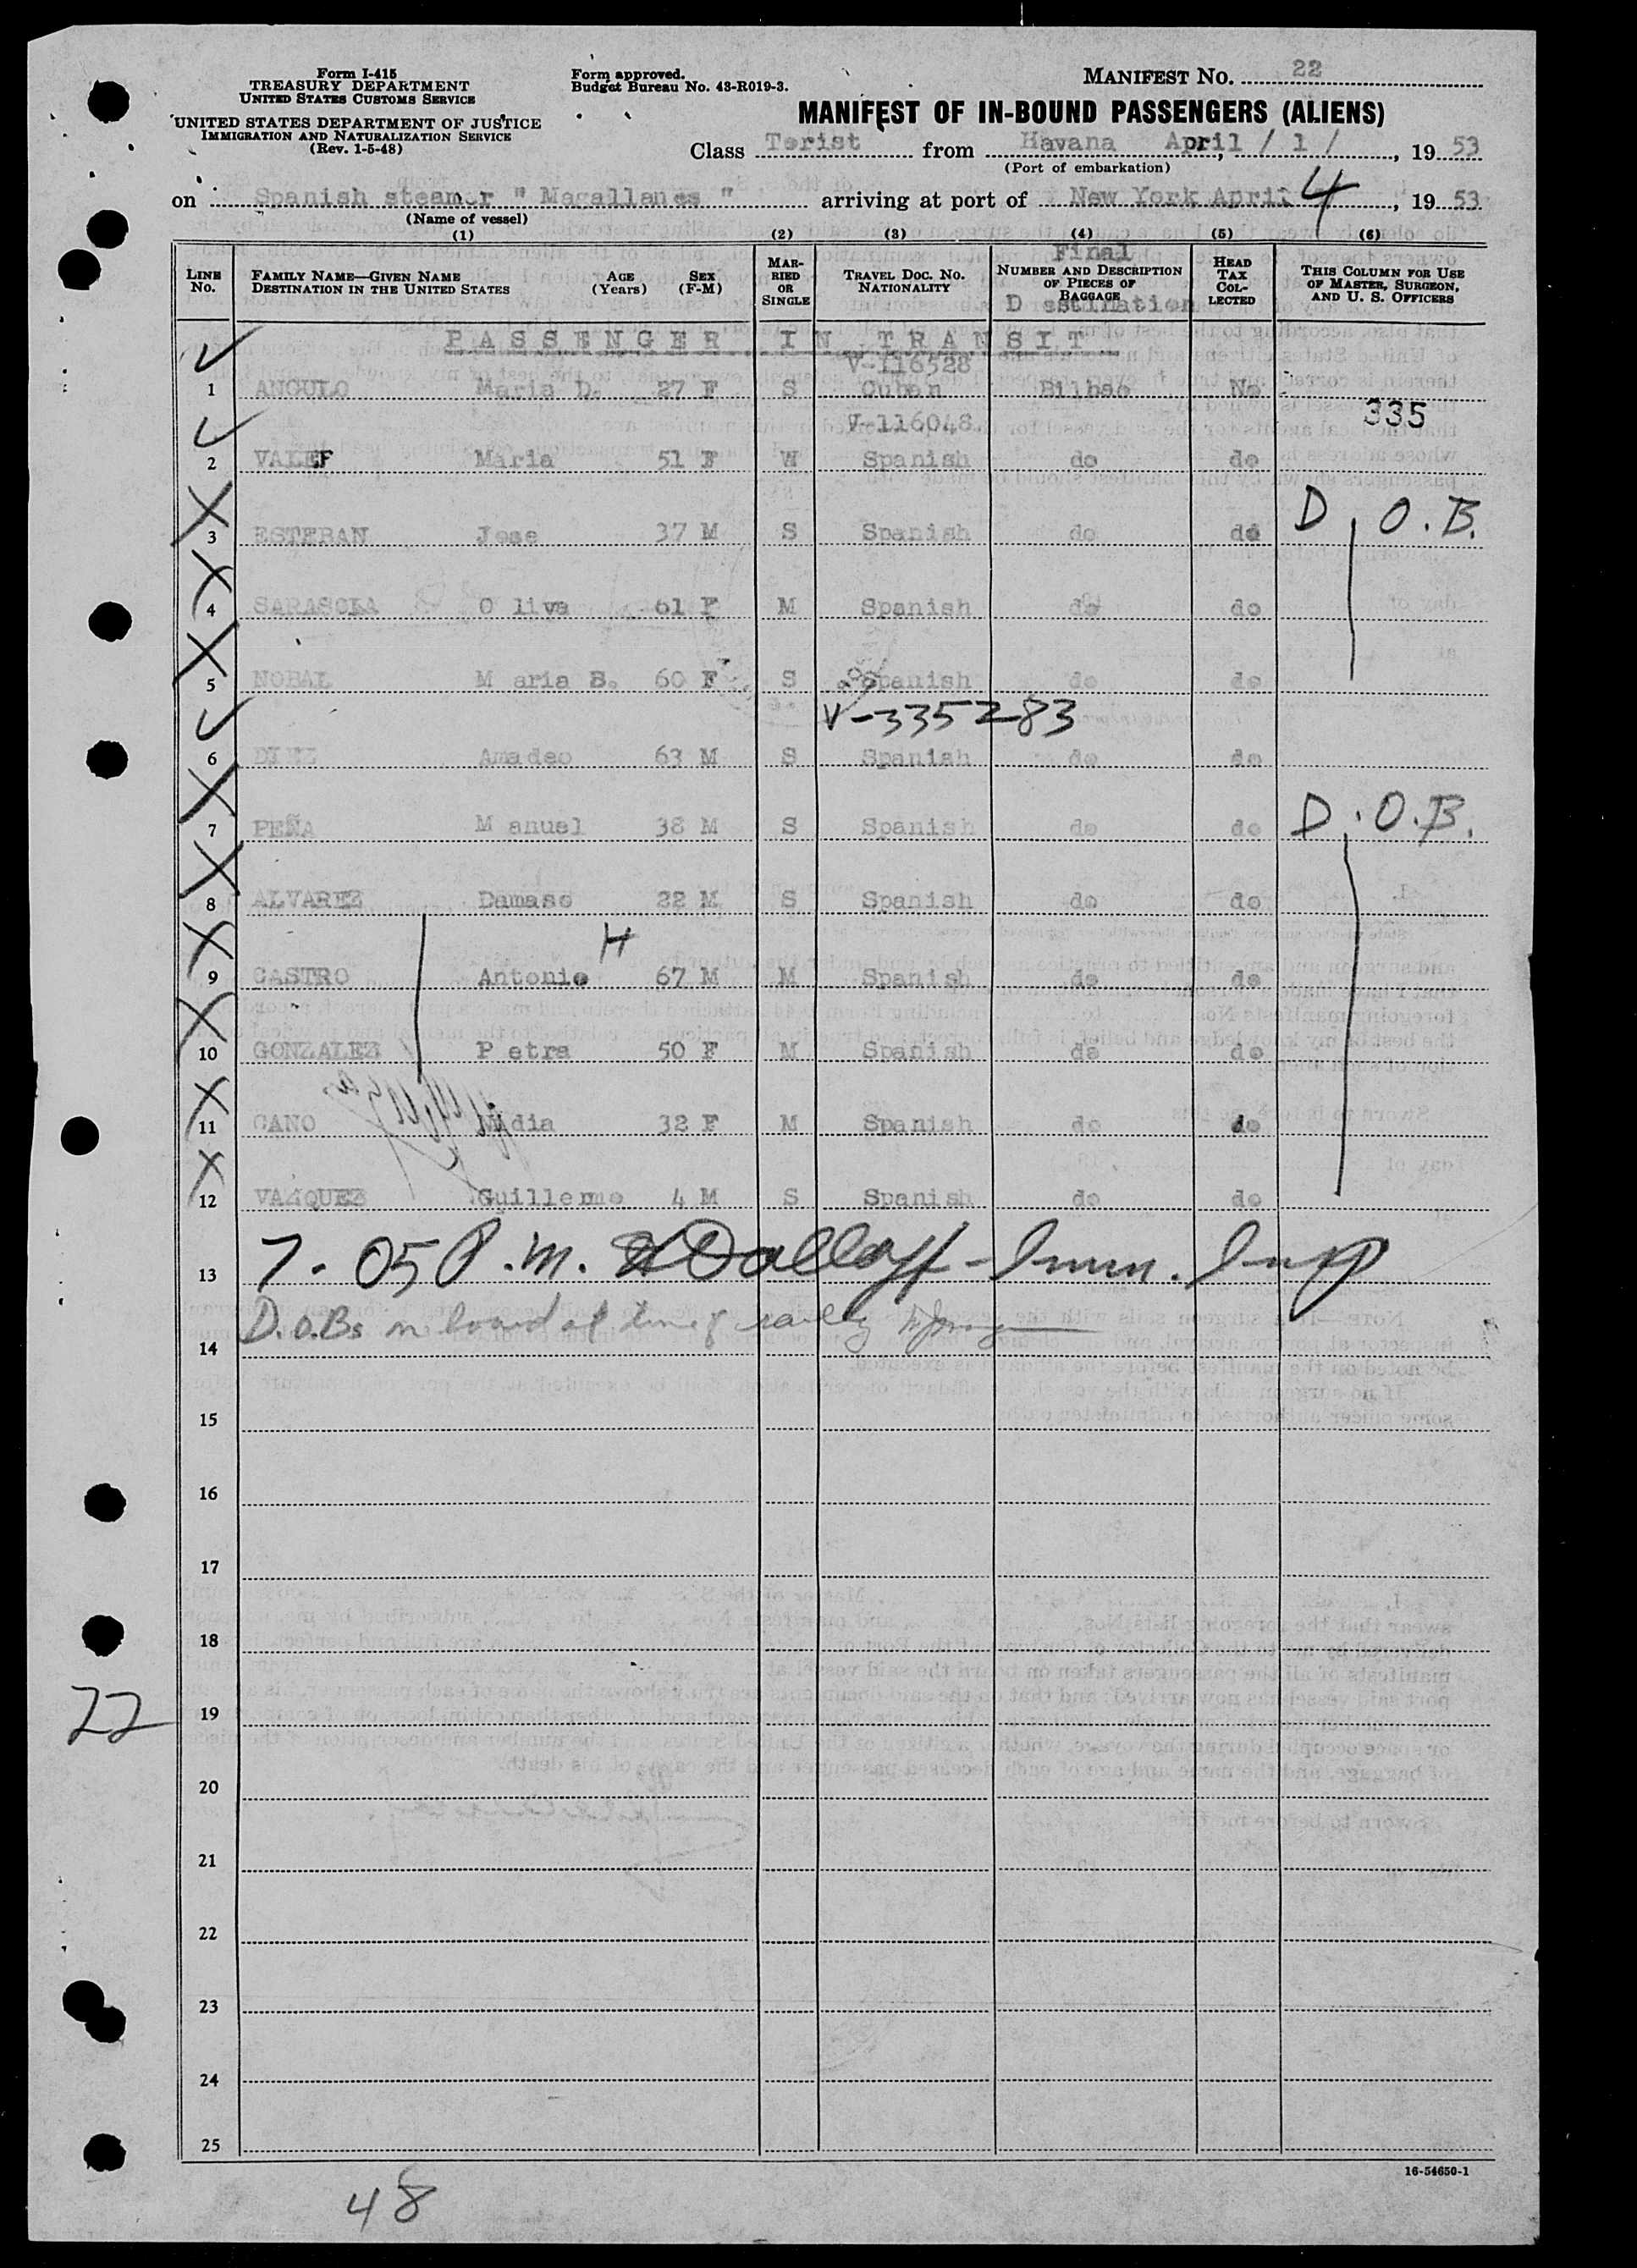 Form I-415
TREASURY DEPARTMENT
UNITED STATES CUSTOMS SERVICE
UNITED STATES DEPARTMENT OF JUSTICE
IMMIGRATION AND NATURALIZATION SERVICE
(Rev. 1-5-48)
Form approved.
Budget Bureau No. 43-R019-3.
MANIFEST NO. 22
MANIFEST OF IN-BOUND PASSENGERS (ALIENS)
Class Torist from Havana April / 1 /, 1953
(Port of embarkation)
on Spanish steamer " Magallanes " arriving at port of New York April 4, 1953
(Name of vessel)
(1) (2) (3) (4) (5) (6)
LINE NO. FAMILY NAME—GIVEN NAME DESTINATION IN THE UNITED STATES AGE (Years) SEX (F-M) MARRIED OR SINGLE TRAVEL DOC. NO. NATIONALITY Final NUMBER AND DESCRIPTION OF PIECES OF BAGGAGE D estination HEAD TAX COLLECTED THIS COLUMN FOR USE OF MASTER, SURGEON, AND U. S. OFFICERS
PASSENGER IN TRANSIT
V-116528
1 ANGULO Maria D. 27 F S Cuban Bilbao No
V-116048 335
2 VALEF Maria 51 F W Spanish do do
3 ESTEBAN Jose 37 M S Spanish do do D. O. B.
4 SARASOLA O liva 61 F M Spanish do do
5 NOBAL M aria B. 60 F S Spanish do do
V-335283
6 DIEZ Amadeo 63 M S Spanish do do
7 PEÑA M anuel 38 M S Spanish do do D. O. B.
8 ALVAREZ Damaso 22 M S Spanish do do
H
9 CASTRO Antonio 67 M M Spanish do do
10 GONZALEZ P etra 50 F M Spanish do do
11 CANO Nidia 32 F M Spanish do do
12 VAZQUEZ Guillermo 4 M S Spanish do do
13 7.05 P.M. - Imm. Insp
14 D.O.Bs on board at time of sailing
15
16
17
18
19
22
20
21
22
23
24
25
16-54650-1
48